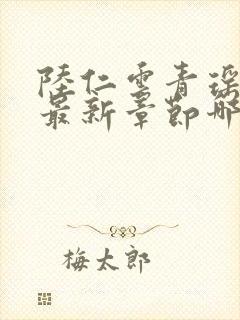 陸仁雲青瑶
最新章節哪
梅太郎